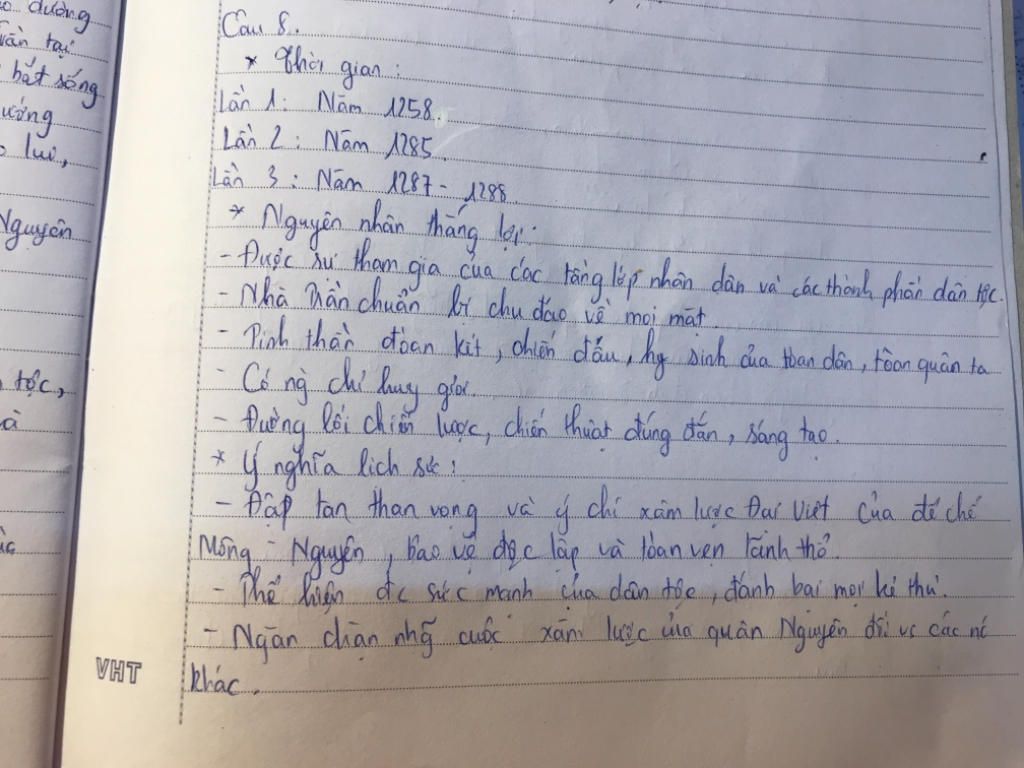 o dưỡng
vẫn tại
bắt sống
ướng
o lui,
Nguyên
tộc,
à
Câu 8.
* Thời gian :
Lần 1: Năm 1258.
Lần 2 : Năm 1285.
Lần 3 : Năm 1287 - 1288
* Nguyên nhân thắng lợi:
- Được sự tham gia của các tầng lớp nhân dân và các thành phần dân tộc.
- Nhà Trần chuẩn bị chu đáo về mọi mặt.
- Tinh thần đoàn kết, chiến đấu, hy sinh của toàn dân, toàn quân ta
- Có ng chỉ huy giỏi.
- Đường lối chiến lược, chiến thuật đúng đắn, sáng tạo.
* Ý nghĩa lịch sử :
- Đập tan tham vọng và ý chí xâm lược Đại Việt của đế chế
Mông - Nguyên, bảo vệ độc lập và toàn vẹn lãnh thổ.
- Thể hiện đc sức mạnh của dân tộc, đánh bại mọi kẻ thù.
- Ngăn chặn nhg cuộc xâm lược của quân Nguyên đối vs các nc
khác.
VHT